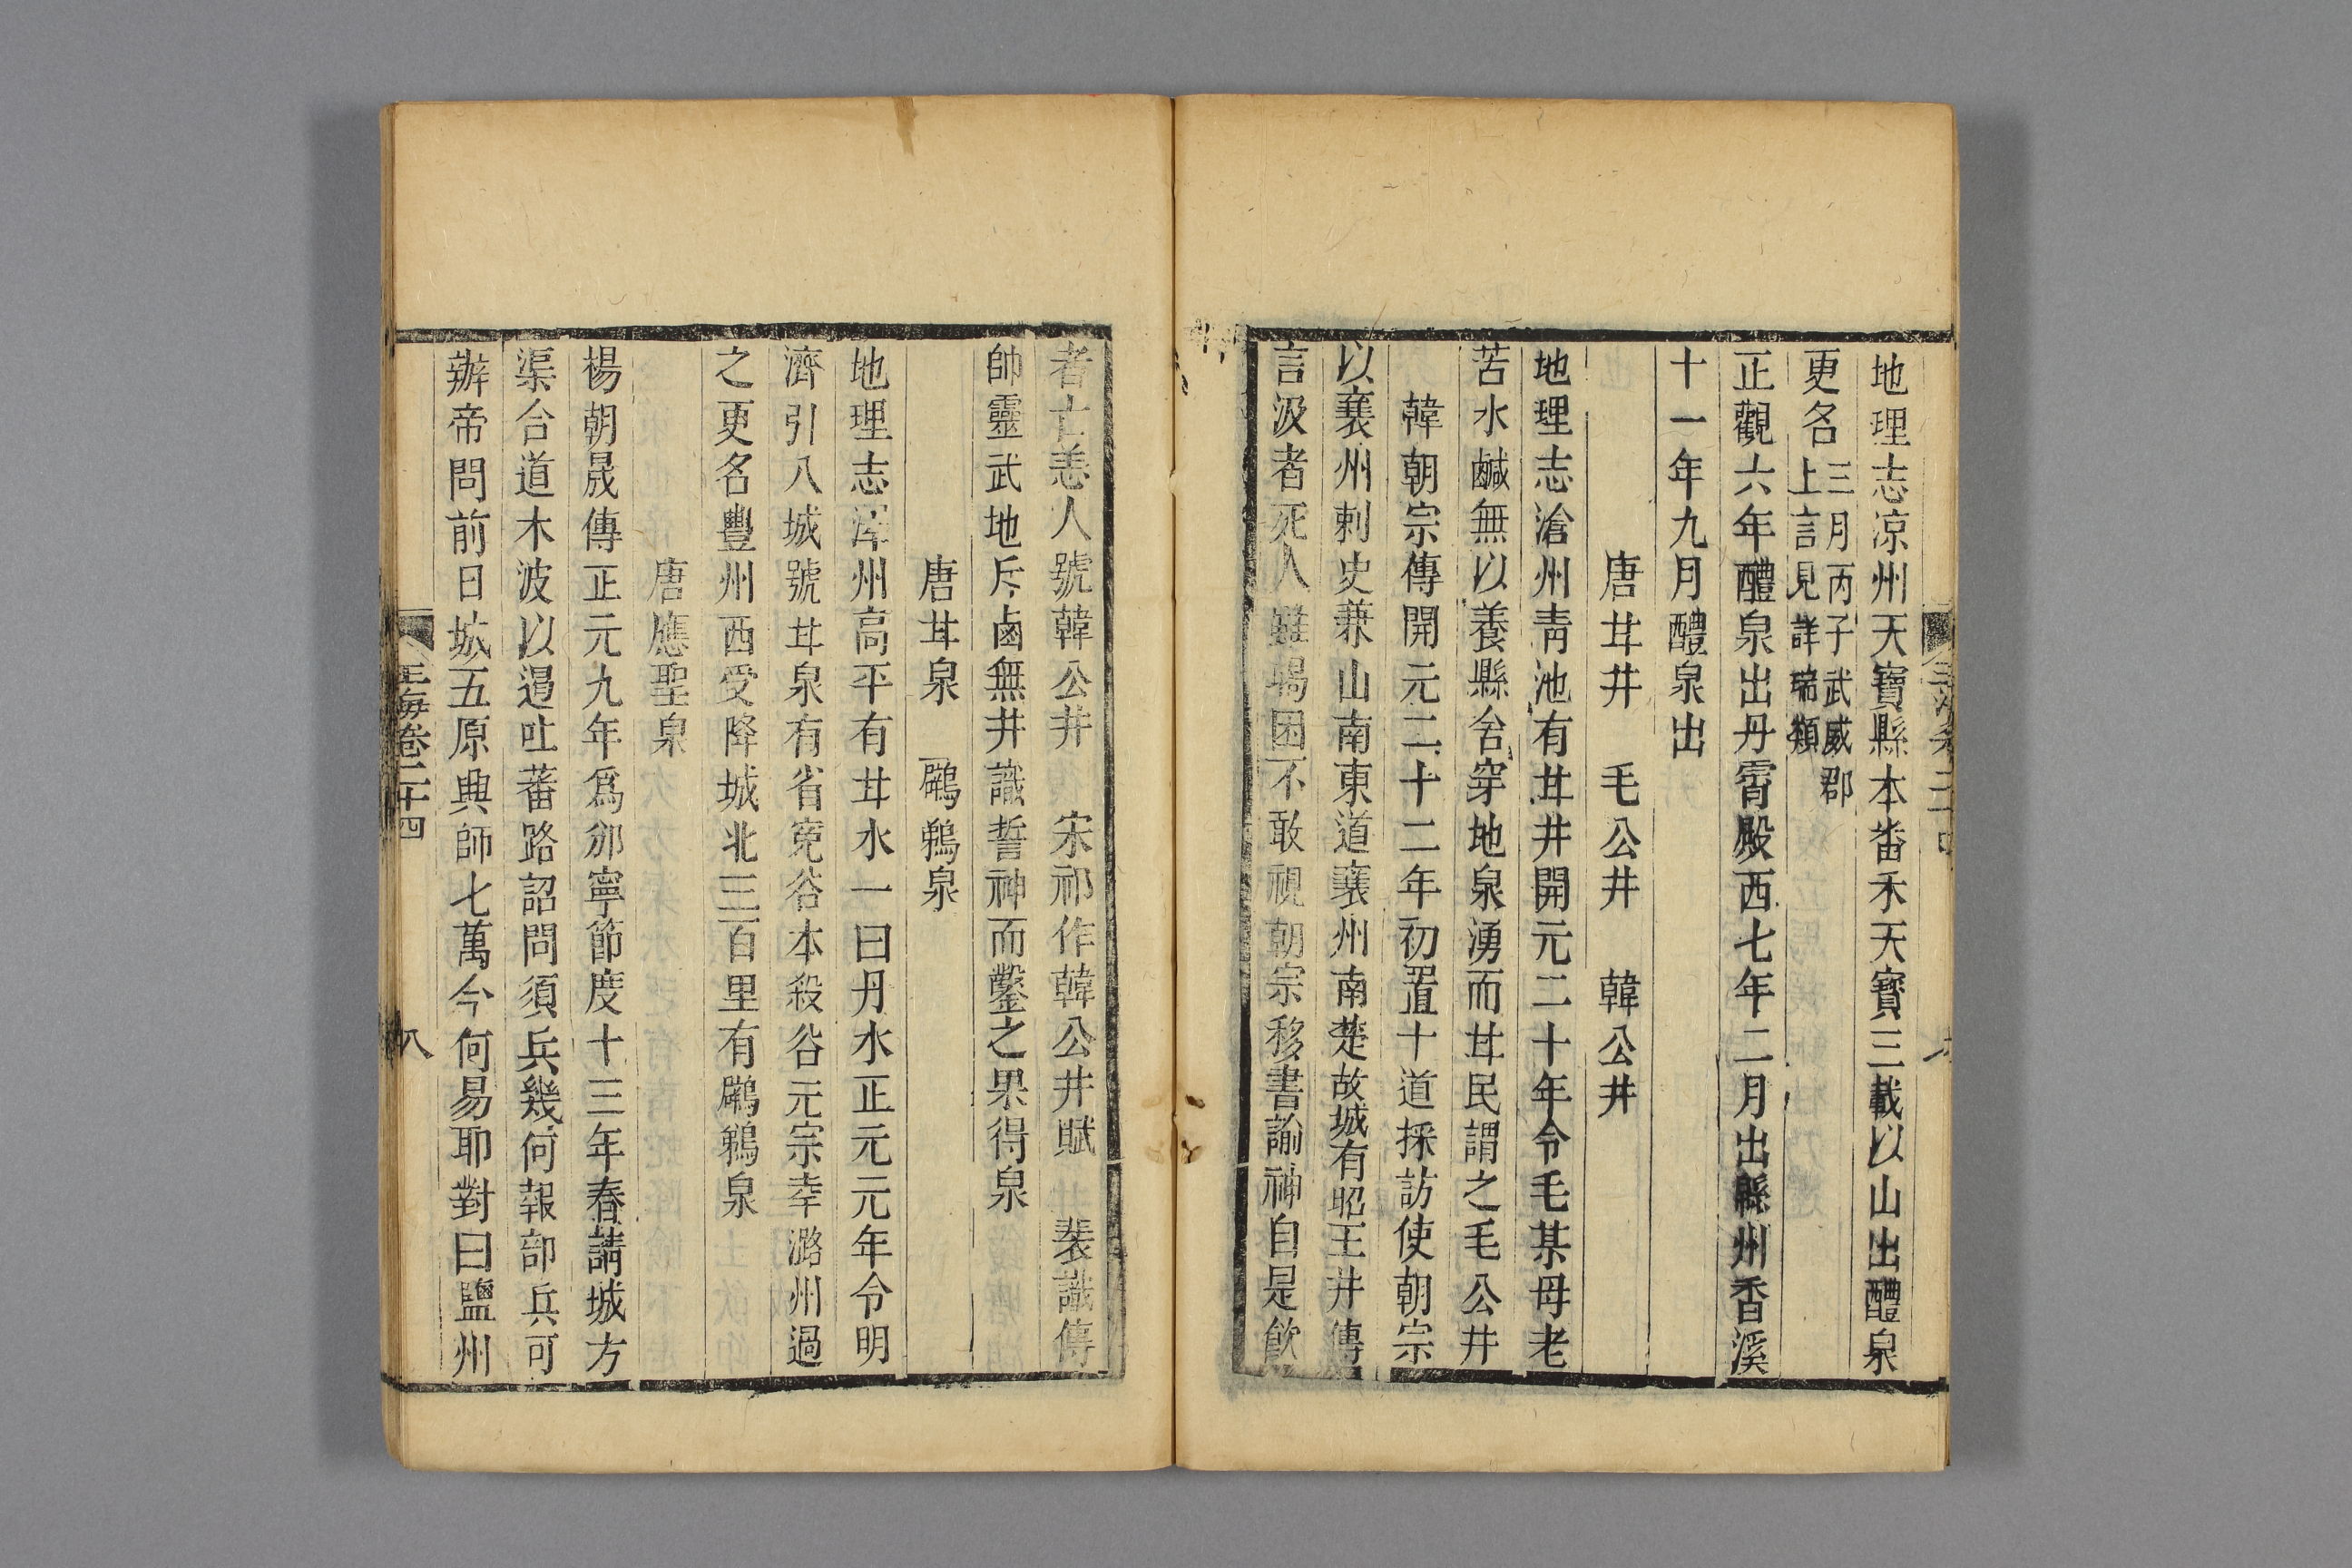 地理志凉州天寶縣本番禾天寶三載以山出醴泉
更名三月丙子武威郡上言見詳瑞類
正觀六年醴泉出丹霄殿西七年二月出縣州香溪
十一年九月醴泉出
唐甘井　毛公井　韓公井
地理志滄州靑池有甘井開元二十年令毛某母老
苦水鹹無以養縣舍穿地泉湧而甘民謂之毛公井
韓朝宗傳開元二十二年初置十道採訪使朝宗
以襄州刺史兼山南東道襄州南楚故城有昭王井傳
言汲者死人雖暍困不敢視朝宗移書諭神自是飮
者亡恙人號韓公井　宋祁作韓公井賦　裴識傳
帥靈武地斥鹵無井識誓神而鑿之果得泉
唐甘泉　鸊鵜泉
地理志澤州高平有甘水一曰丹水正元元年令明
濟引入城號甘泉有省寃谷本殺谷元宗幸潞州過
之更名豐州西受降城北三百里有鸊鵜泉
唐應聖泉
楊朝晟傳正元九年爲邠寧節度十三年春請城方
渠合道木波以遏吐蕃路詔問須兵幾何報部兵可
辦帝問前日城五原興師七萬今何易耶對曰鹽州
玉海卷二十四
八